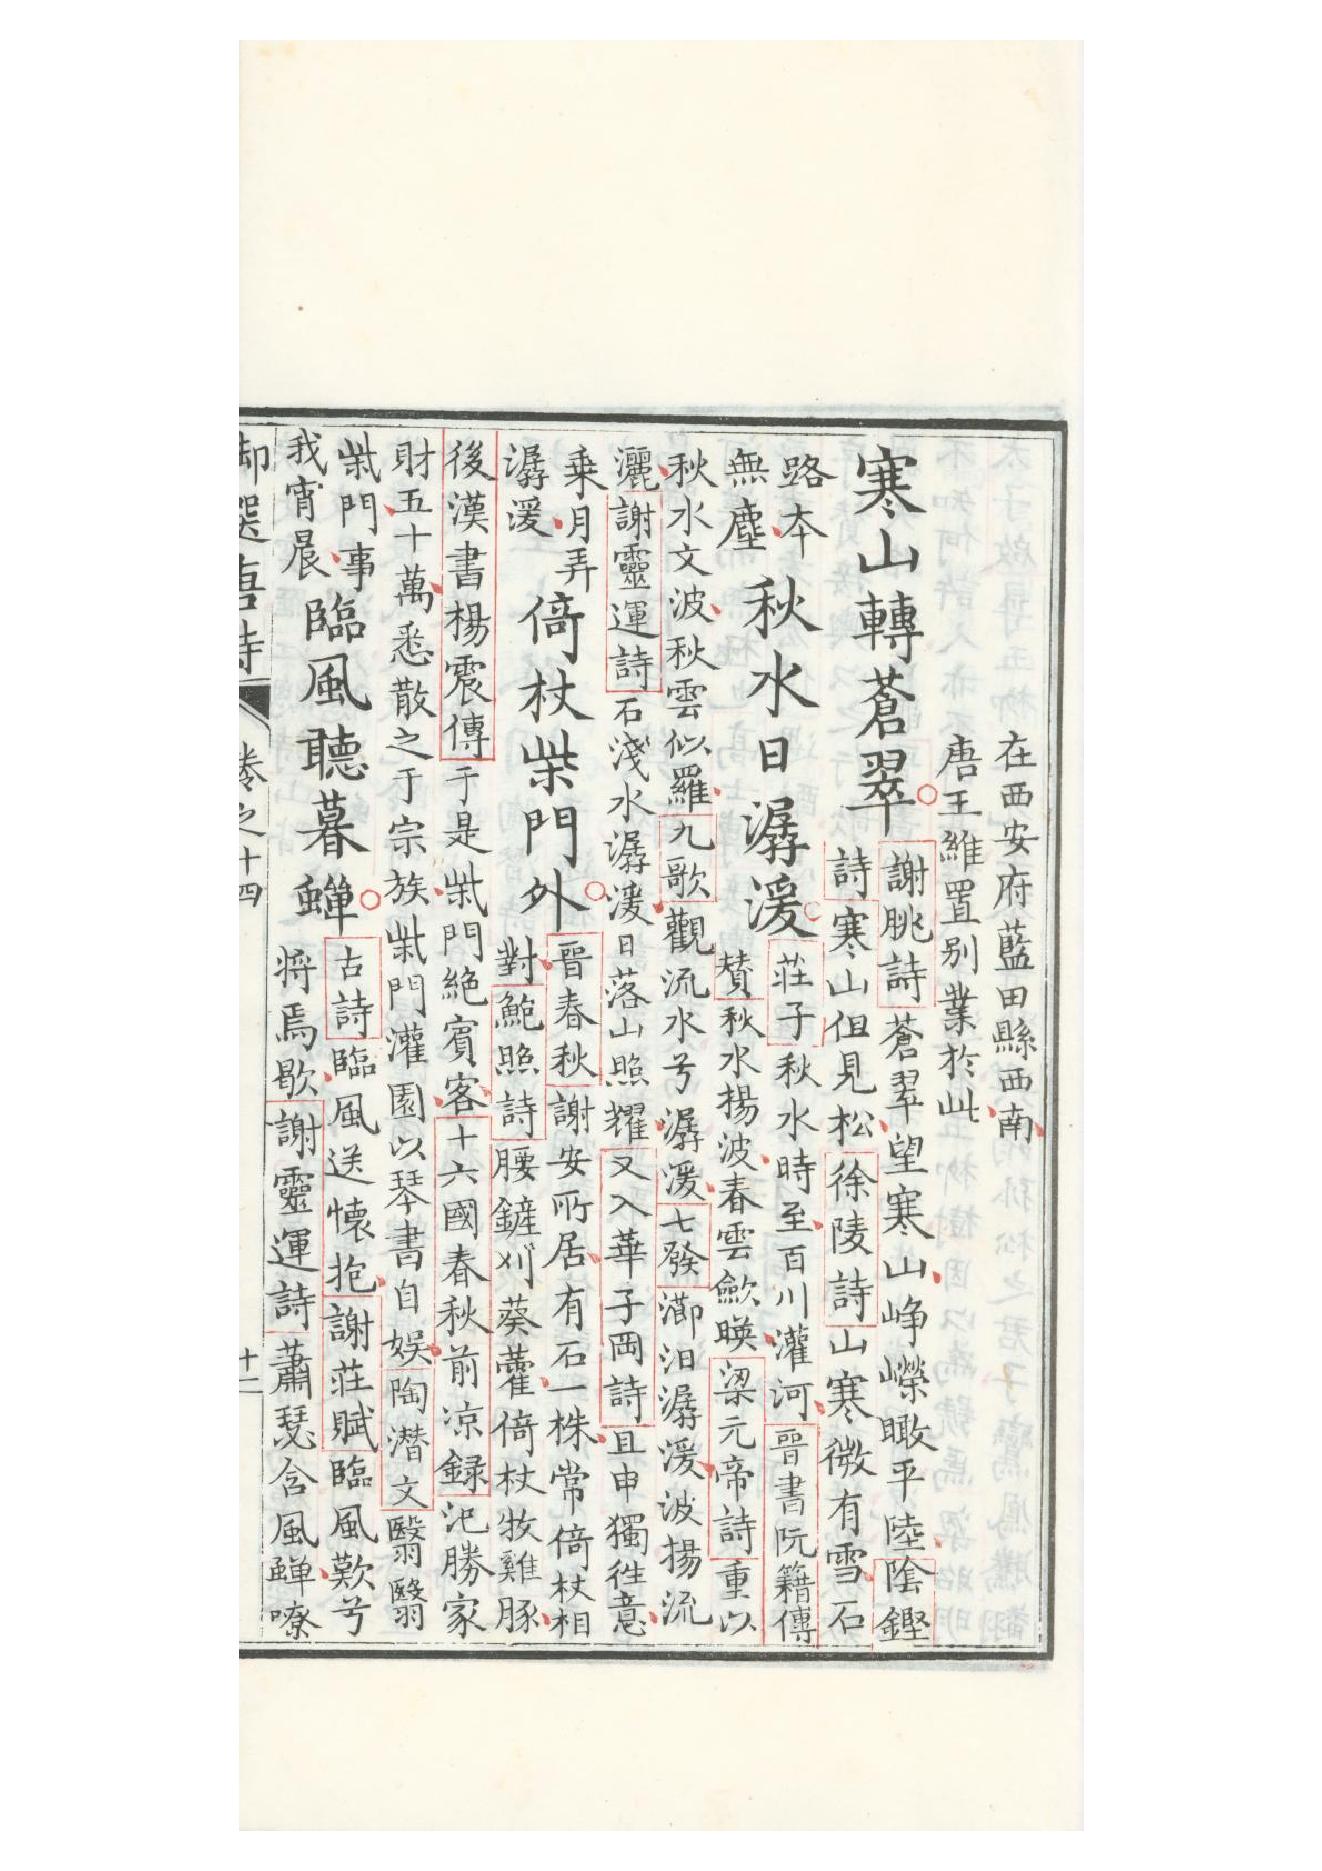 在西安府藍田縣西南
唐王維置别業於此
寒山轉蒼翠
謝朓詩蒼翠望寒山崢嶸瞰平陸陰鏗
詩寒山但見松徐陵詩山寒微有雪石
路本
無塵
秋水日潺湲
莊子秋水時至百川灌河晉書阮籍傳
賛秋水揚波春雲歛暎梁元帝詩重以
秋水文波秋雲似羅九歌觀流水兮潺湲七發瀄汩潺湲波揚流
灑謝靈運詩石淺水潺湲日落山照耀又入華子岡詩且申獨徃意
乗月弄
潺湲
倚杖柴門外
晉春秋謝安所居有石一株常倚杖相
對鮑照詩腰鐮刈葵藿倚杖牧雞豚
後漢書楊震傳于是柴門絶賓客十六國春秋前凉録氾勝家
財五十萬悉散之于宗族柴門灌園以琴書自娱陶潛文翳翳
柴門事
我宵晨
臨風聽暮蟬
古詩臨風送懐抱謝莊賦臨風歎兮
将焉歇謝靈運詩蕭瑟含風蟬嘹
御選唐詩 卷之十四 十二